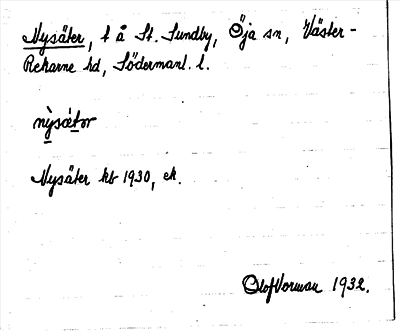 Nysäter, t å St. Sundby, Öja sn, Väster-
Rekarne hd, Södermanl. l.
nỳsætər
Nysäter kb 1930, ek.
Olof Vorman 1932.